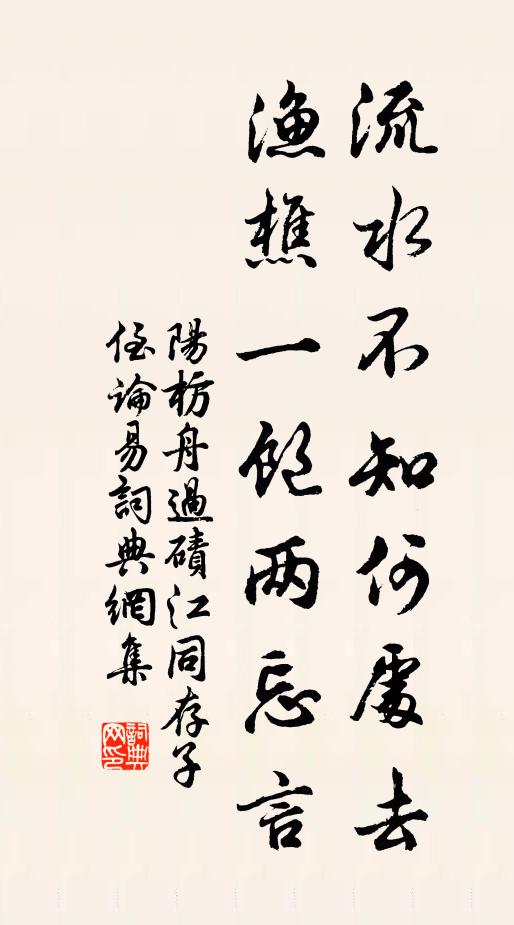 流水不知何處去
漁樵一饱两忘言
陽枋舟過磧江同存子
侄論易詞典網集
詞典网印